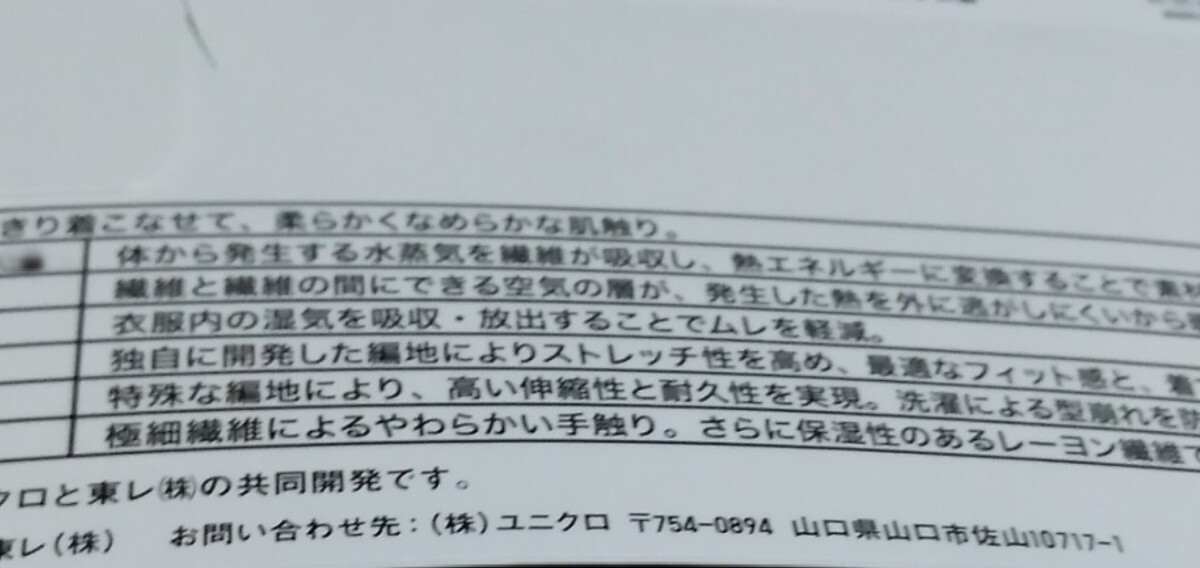 きり着こなせて、柔らかくなめらかな肌触り。
体から発生する水蒸気を繊維が吸収し、熱エネルギーに変換することで素材
繊維と繊維の間にできる空気の層が、発生した熱を外に逃がしにくいから
衣服内の湿気を吸収・放出することでムレを軽減。
独自に開発した編地によりストレッチ性を高め、最適なフィット感と、着
特殊な編地により、高い伸縮性と耐久性を実現。洗濯による型崩れを防
極細繊維によるやわらかい手触り。さらに保湿性のあるレーヨン繊維で
クロと東レ㈱の共同開発です。
東レ(株) お問い合わせ先:(株)ユニクロ 〒754-0894 山口県山口市佐山10717-1